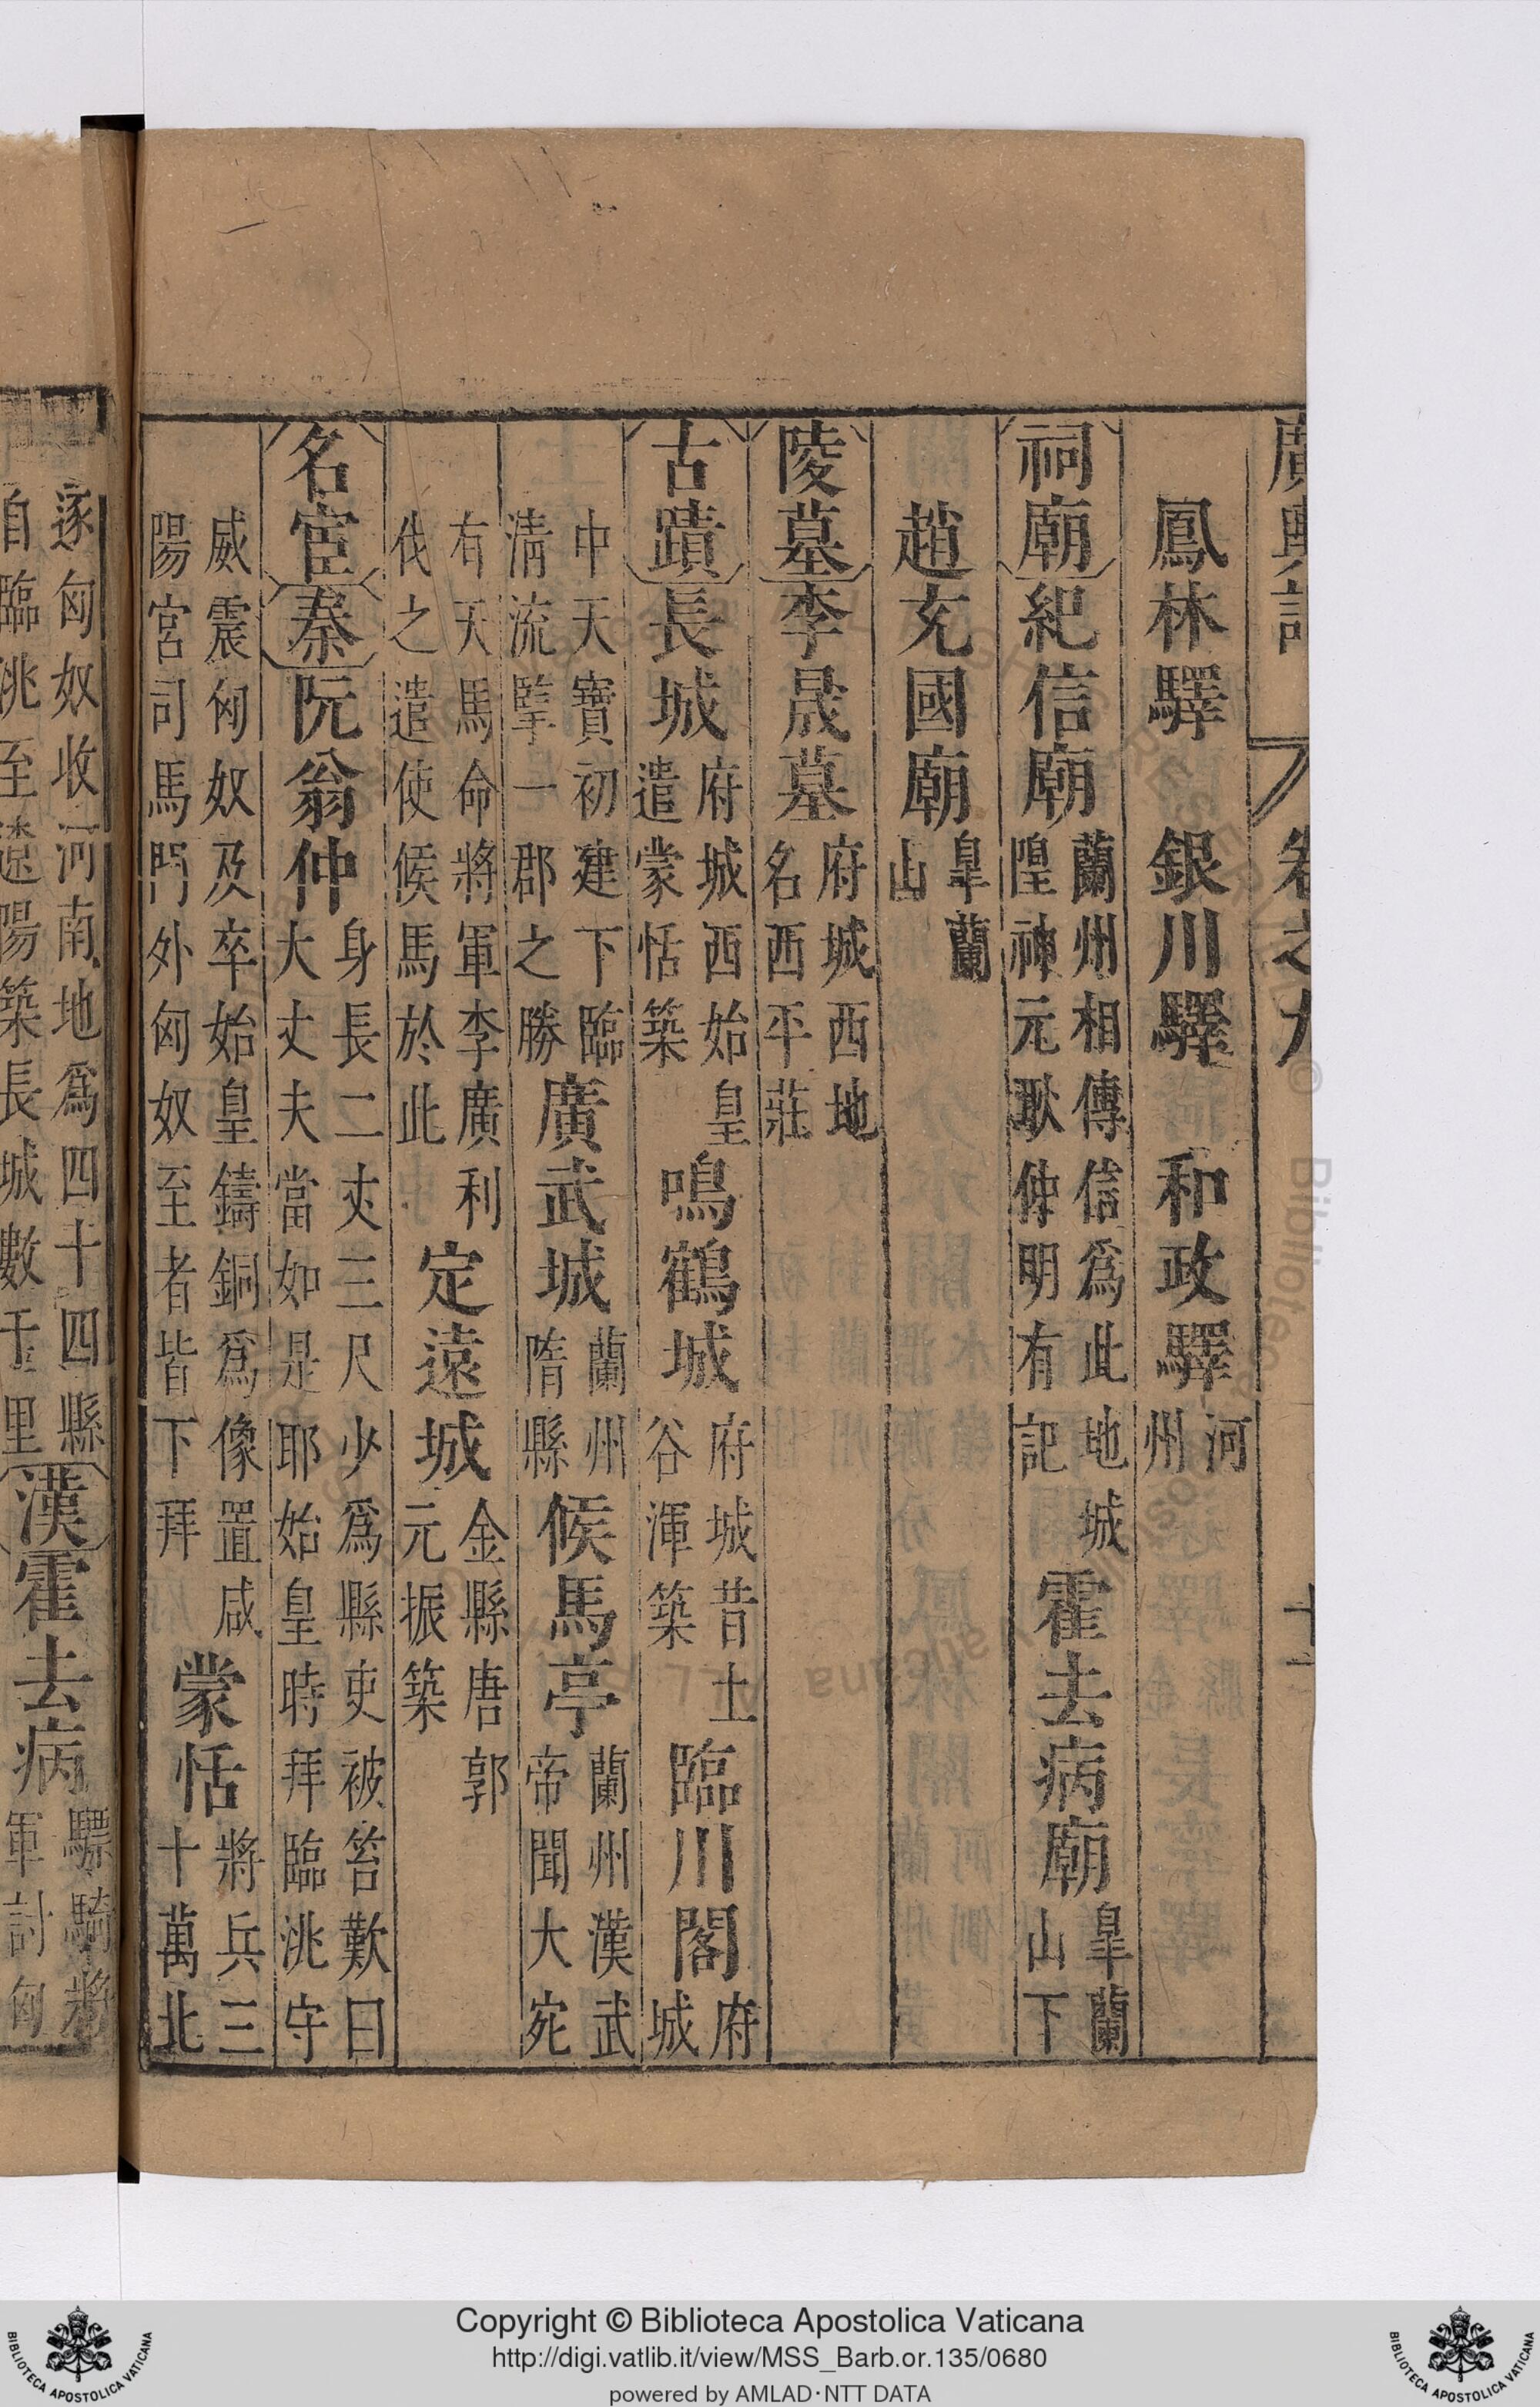 廣輿記 卷之九 十一
鳳林驛 銀川驛 和政驛 河州
祠廟 紀信廟 蘭州相傳信爲此地城隍神元耿仲明有記 霍去病廟 皐蘭山下
趙充國廟 皐蘭山
陵墓 李晟墓 府城西地名西平莊
古蹟 長城 府城西始皇遣蒙恬築 鳴鶴城 府城昔土谷渾築 臨川閣 府城
中天寶初建下臨清流擥一郡之勝 廣武城 蘭州隋縣 候馬亭 蘭州漢武帝聞大宛
有天馬命將軍李廣利伐之遣使候馬於此 定遠城 金縣唐郭元振築
名宦 秦 阮翁仲 身長二丈三尺少爲縣吏被笞歎曰大丈夫當如是耶始皇時拜臨洮守
威震匈奴及卒始皇鑄銅爲像置咸陽宮司馬門外匈奴至者皆下拜 蒙恬 將兵三十萬北
逐匈奴收河南地爲四十四縣自臨洮至遼陽築長城數千里 漢 霍去病 驃騎將軍討匈
Copyright © Biblioteca Apostolica Vaticana
http://digi.vatlib.it/view/MSS_Barb.or.135/0680
powered by AMLAD·NTT DATA
BIBLIOTECA APOSTOLICA VATICANA
BIBLIOTECA APOSTOLICA VATICANA